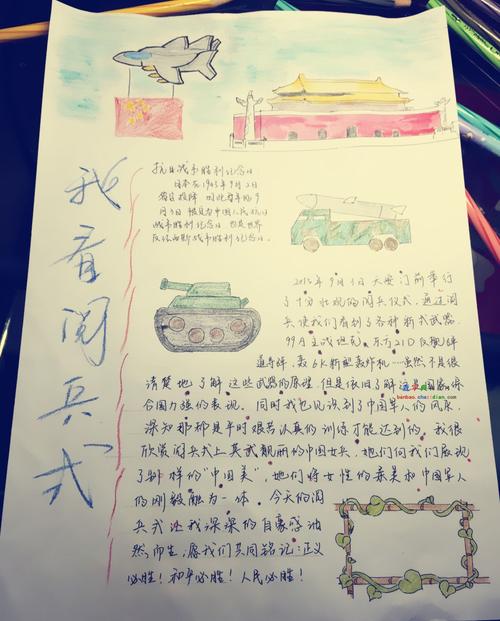 我看阅兵式
抗日战争胜利纪念日
日本在1945年9月2日
签署投降 因此每年的9
月3日被定为中国人民抗日
战争胜利纪念日, 也是世界
反法西斯战争胜利纪念日。
2015年9月3日天安门前举行
了十分壮观的阅兵仪式, 通过阅
兵使我们看到了各种新式武器,
99A主战坦克, 东方21D
道导弹, 轰6K新型轰炸机……虽然不是很
清楚地了解这些武器的原理, 但是依旧了解这是国家综
合国力强的表现。同时我也见识到了中国军人的风采,
深知那都是平时艰苦认真的训练才能达到的。我很
欣赏阅兵式上英武靓丽的中国女兵, 她们向我们展现
了别样的“中国美”, 她们将女性的柔美和中国军人
的刚毅融为一体。今天的阅
兵式让我深深的自豪感油
然而生, 愿我们共同铭记: 正义
必胜! 和平必胜! 人民必胜!
banbao.chazidian.com